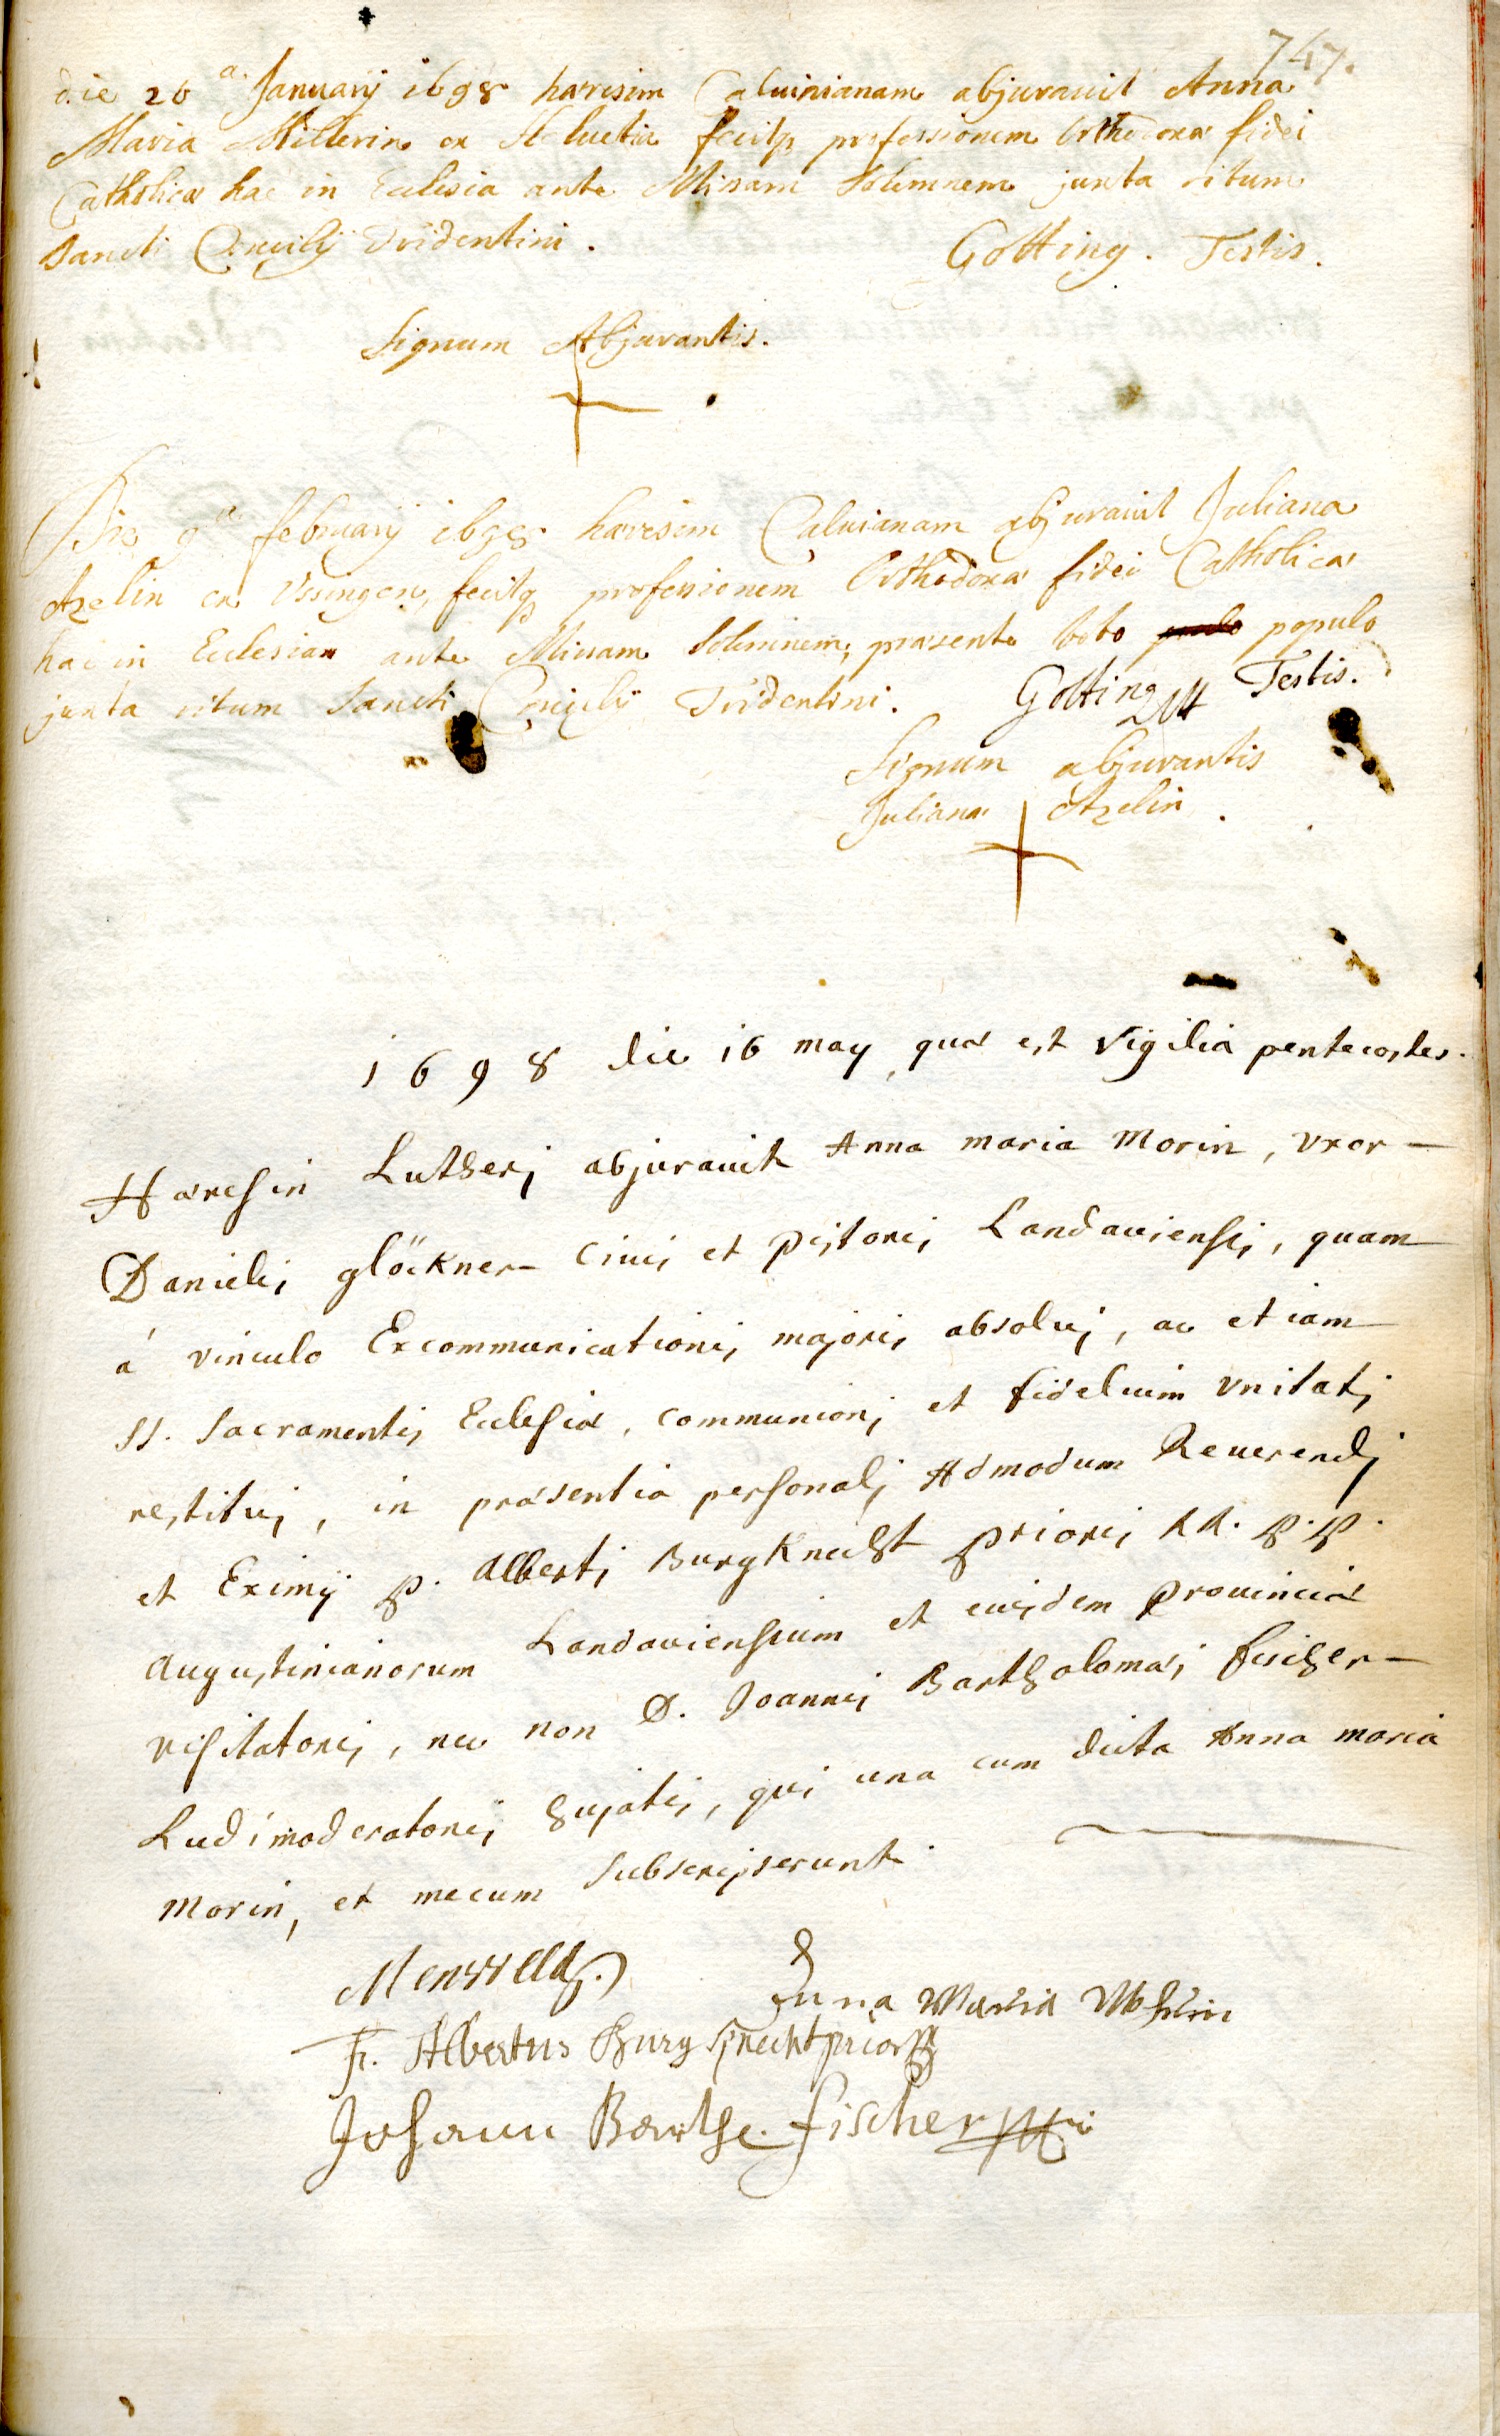 747.
die 26a. Januarij 1698 hæresim Caluinianam abjurauit Anna
Maria Millerin ex Heluetia fecitq professionem Orthodoxæ fidei
Catholicæ hac in Ecclesia ante Missam Solemnem juxta ritum
Sancti Concilij Tridentini.
Gotting. Testis.
Signum Abjurantis.
Die 9a februarij 1698 hæresim Caluianam abjurauit Juliana
Azelin ex Vsingen, fecitq professionem Orthodoxæ fidei Catholicæ
hac in Ecclesia ante Missam Solemnem, præsente toto populo
juxta ritum Sancti Concilij Tridentini.
Gotting Testis.
Signum abjurantis
Juliana Azelin.
1698 die 16 may, quæ est Vigilia pentecostes.
Hæresin Lutheri abjurauit Anna maria Morin, vxor
Danielis glöckner Ciuis et pistoris Landauiensis, quam
á vinculo Excommunicationis majoris absolui, ac etiam
SS. Sacramentis Ecclesiæ, communioni et fidelium vnitati
restitui, in præsentia personali Admodum Reuerendi
et Eximij P. Alberti Burgknecht prioris RR. P.P.
Augustinianorum Landauiensium et eiusdem prouinciæ
visitatoris, nec non D. Joannis Bartholomæi fischer
Ludimoderatoris hujatis, qui una cum dicta Anna maria
Morin, et mecum subscripserunt.
Anna Maria Mohrin
Fr. Albertus Burgknecht prior
Johann Barthe. fischer